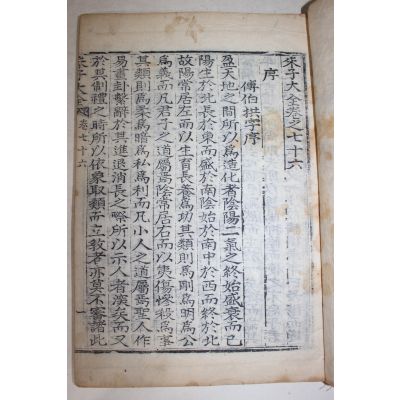 朱子大全卷之七十六
序
傅伯拱字序
盈天地之間所以爲造化者陰陽二氣之終始盛衰而已
陽生於北長於東而盛於南陰始於南中於西而終於北
故陽常居左而以生育長養爲功其類則爲剛爲明爲公
爲義而凡君子之道屬焉陰常居右而以夷傷慘殺爲事
其類則爲柔爲暗爲私爲利而凡小人之道屬焉聖人作
易畫卦繫辭於其進退消長之際所以示人者深矣而又
於其制禮之時所以依象取類而立敎者亦莫不審諸此
朱子大全 卷七十六 一